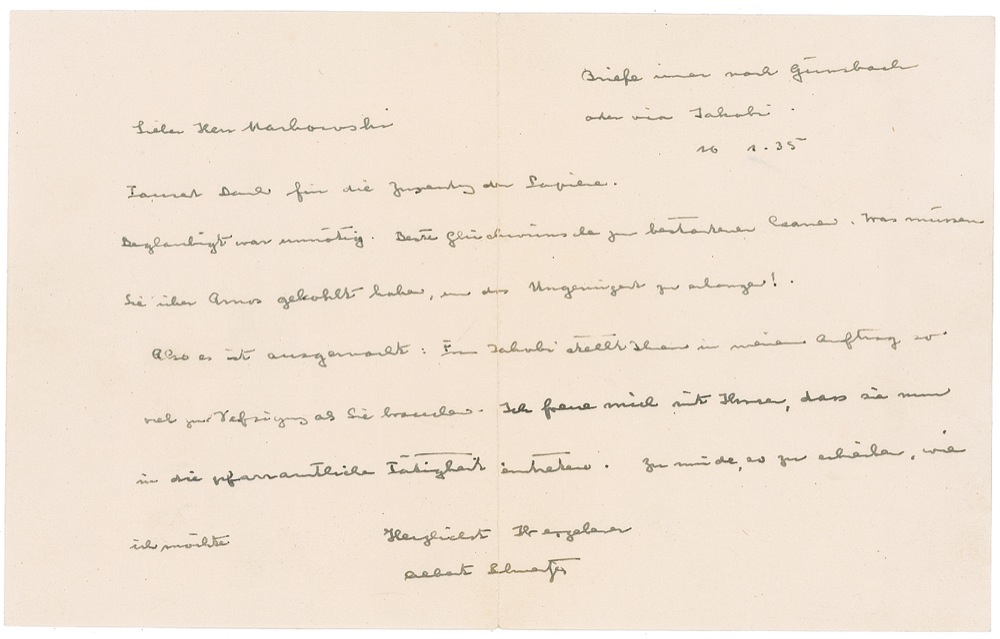 Briefe immer nach Günsbach
oder via Jakobi.
Lieber Herr Markowski
10 1.35
Tausend Dank für die Zusendung der Papiere.
Beglaubigt war unnötig. Beste Glückwünsche zu bestandenem Examen. Was müssen
Sie über Amos gekohlt haben, um das zu erlangen!.
Also es ist ausgemacht: Jakobi stellt Ihnen in meinem Auftrag so
viel zur Verfügung als Sie brauchen. Ich freue mich mit Ihnen, dass sie nun
in die pfarramtliche Tätigkeit eintreten. Zu müde, so zu schreiben, wie
ich möchte Herzlichst Ihr ergebener
Albert Schweitzer